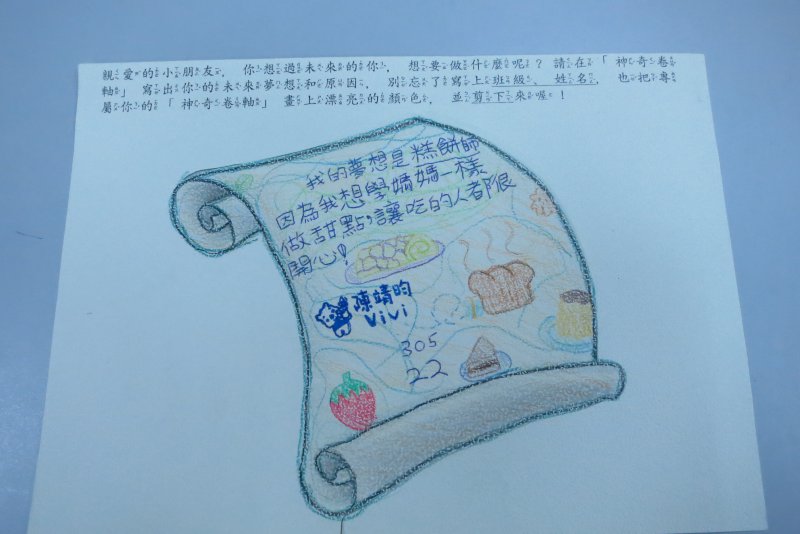 親愛的小朋友，你想過未來的你，想要做什麼呢？請在「神奇卷
軸」寫出你的未來夢想和原因，別忘了寫上班級、姓名，也把專
屬你的「神奇卷軸」畫上漂亮的顏色，並剪下來喔！
我的夢想是糕餅師
因為我想學媽媽一樣
做甜點，讓吃的人都很
開心！
陳靖昀
ViVi
305
22